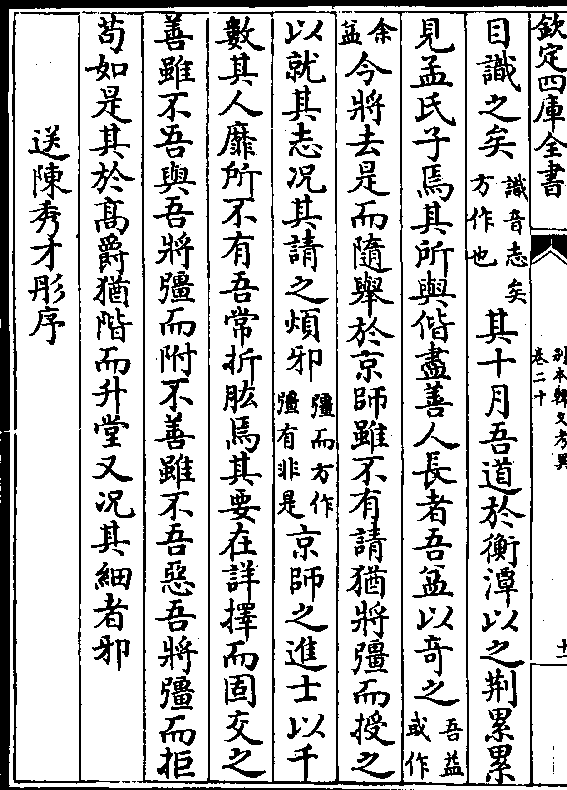 欽定四庫全書
別本韓文考異
卷二十
十一
目識之矣識音志矣方作也其十月吾道於衡潭以之荆累累
見孟氏子焉其所與偕盡善人長者吾益以奇之吾益或作
余益今將去是而隨舉於京師雖不有請猶將彊而授之
以就其志况其請之煩邪彊而方作彊有非是京師之進士以千
數其人靡所不有吾常折肱焉其要在詳擇而固交之
善雖不吾與吾將彊而附不善雖不吾惡吾將彊而拒
苟如是其於髙爵猶階而升堂又况其細者邪
送陳秀才彤序